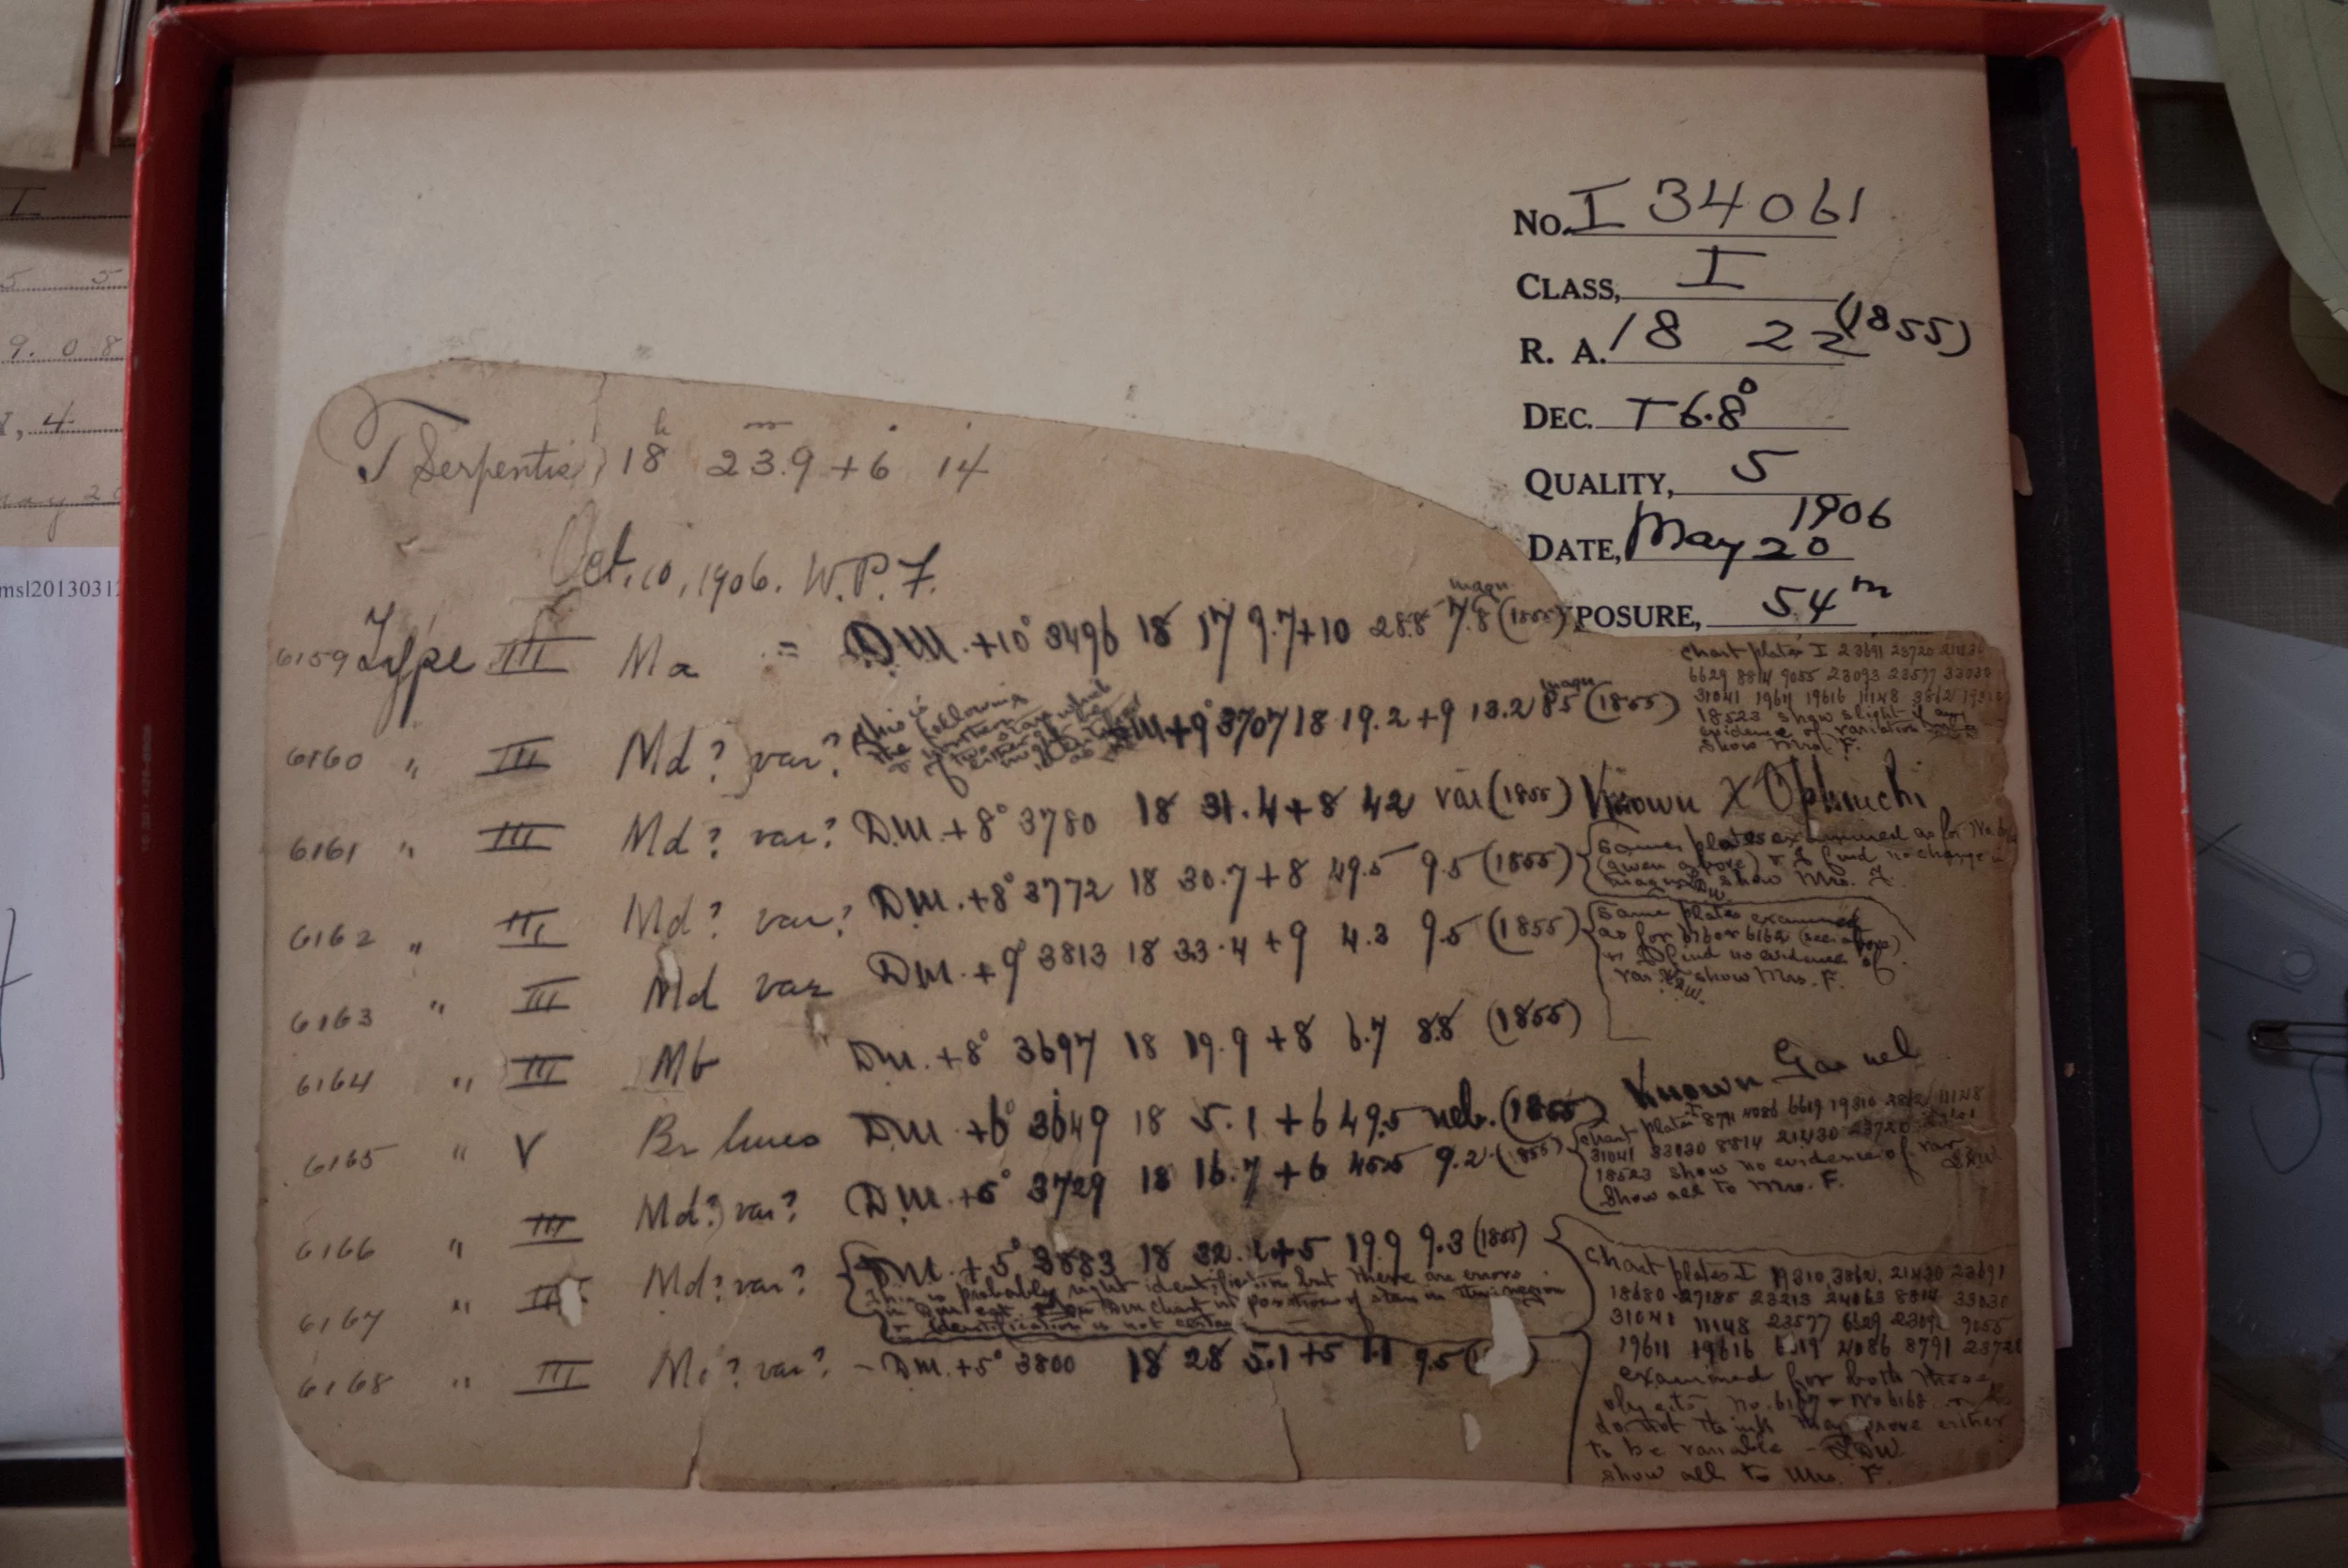 No. I 34061
CLASS, I
R. A. 18 22 (1855)
DEC. +6.8°
QUALITY, 5
DATE, May 20 1906
XPOSURE, 54m
T Serpentis 18h 23.9m +6° 14'
Oct. 10, 1906. W.P.F.
6159 Type III Ma = DM. +10° 3496 18 17 9.7 +10 28.8 7.8 magn. (1855)
chart plates I 23691 23720 21430
6629 8814 9055 23093 23577 33030
31041 19611 19616 11148 3862
18523 show slight if any
evidence of variation
Show Mrs. F.
6160 " III Md? var? DM +9° 3707 18 19.2 +9 13.2 8.5 magn (1855)
This is
the following
6161 " III Md? var? DM. +8° 3780 18 31.4 +8 42 var (1855) Known X Ophiuchi
6162 " III Md? var? DM. +8° 3772 18 30.7 +8 49.5 9.5 (1855)
Same plates examined as for No.
(given above) & I find no change in
magn. show Mrs. F.
6163 " III Md var DM. +9° 3813 18 33.4 +9 4.3 9.5 (1855)
Same plates examined
as for 6160 or 6162 (see above)
& I find no evidence of
var. show Mrs. F.
6164 " III Mb DM. +8° 3697 18 19.9 +8 6.7 8.8 (1855)
6165 " V Br lines DM +6° 3649 18 5.1 +6 49.5 neb. (1855) Known Gas neb
6166 " III Md? var? DM. +6° 3729 18 16.7 +6 45.5 9.2 (1855)
chart plates I 8791 4086 6619 19310 3862 11148
31041 33030 8814 21430 23720
18523 show no evidence of var
Show all to Mrs. F.
6167 " III Md? var? DM. +5° 3883 18 32.1 +5 19.9 9.3 (1855)
This is probably right identification but there are errors
in DM chart in positions of stars in this region
& identification is not certain
6168 " III Mc? var? - DM. +5° 3800 18 28 5.1 +5 1.1 9.5
Chart plates I 19310, 3862, 21430 23691
18680 27185 23213 24063 8814 33030
31041 11148 23577 6629 23093 9055
19611 19616 6619 4086 8791 23720
examined for both these
objects, No. 6167 & No 6168. &
do not think they prove either
to be variable - LDW
show all to Mrs. F.
9.08
msl2013031